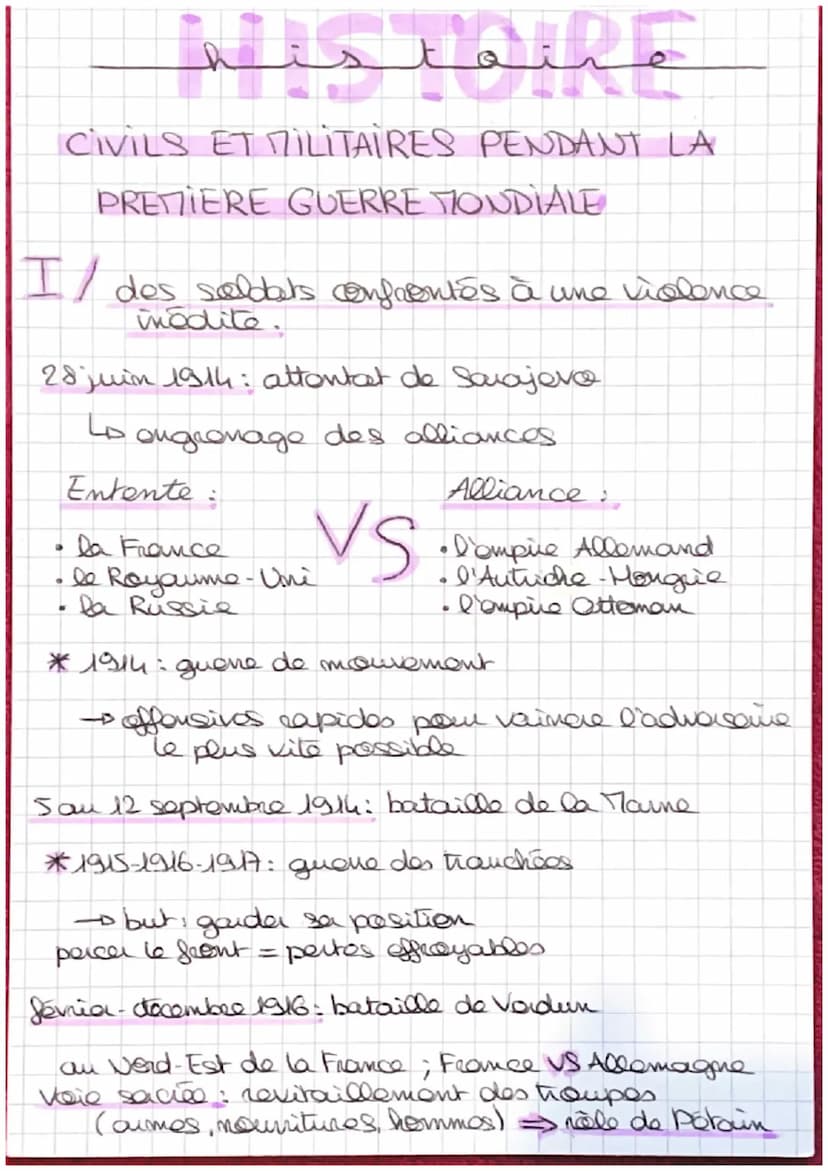 HISTOIRE
histoire
CIVILS ET MILITAIRES PENDANT LA
PREMIERE GUERRE MONDIALE
I/ des soldats confrontés à une violence
inédite.
28 juin 1914 : attentat de Sarajevo
↳ engrenage des alliances
Entente :
VS
Alliance :
• la France
• le Royaume-Uni
• la Russie
• l'empire Allemand
• l'Autriche-Hongrie
• l'empire Ottoman
* 1914 : guerre de mouvement
→ offensives rapides pour vaincre l'adversaire
le plus vite possible
5 au 12 septembre 1914 : bataille de la Marne
* 1915-1916-1917 : guerre des tranchées
→ but : garder sa position
percer le front = pertes effroyables
février-décembre 1916 : bataille de Verdun
au Nord-Est de la France ; France VS Allemagne
Voie sacrée : revitaillement des troupes
(armes, nourritures, hommes) ⇒ rôle de Pétain